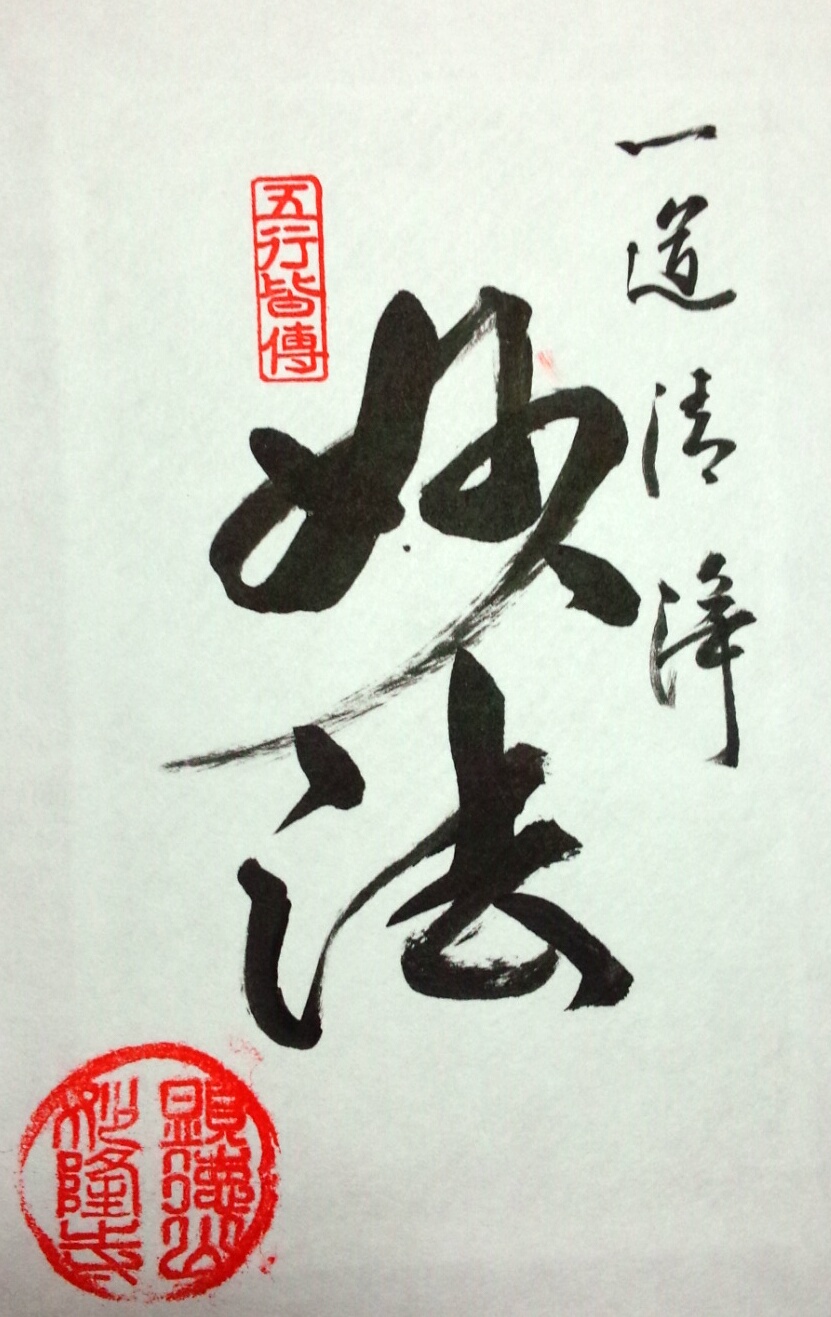 一道清浄
妙法
五行皆傳
顕徳山
妙隆寺